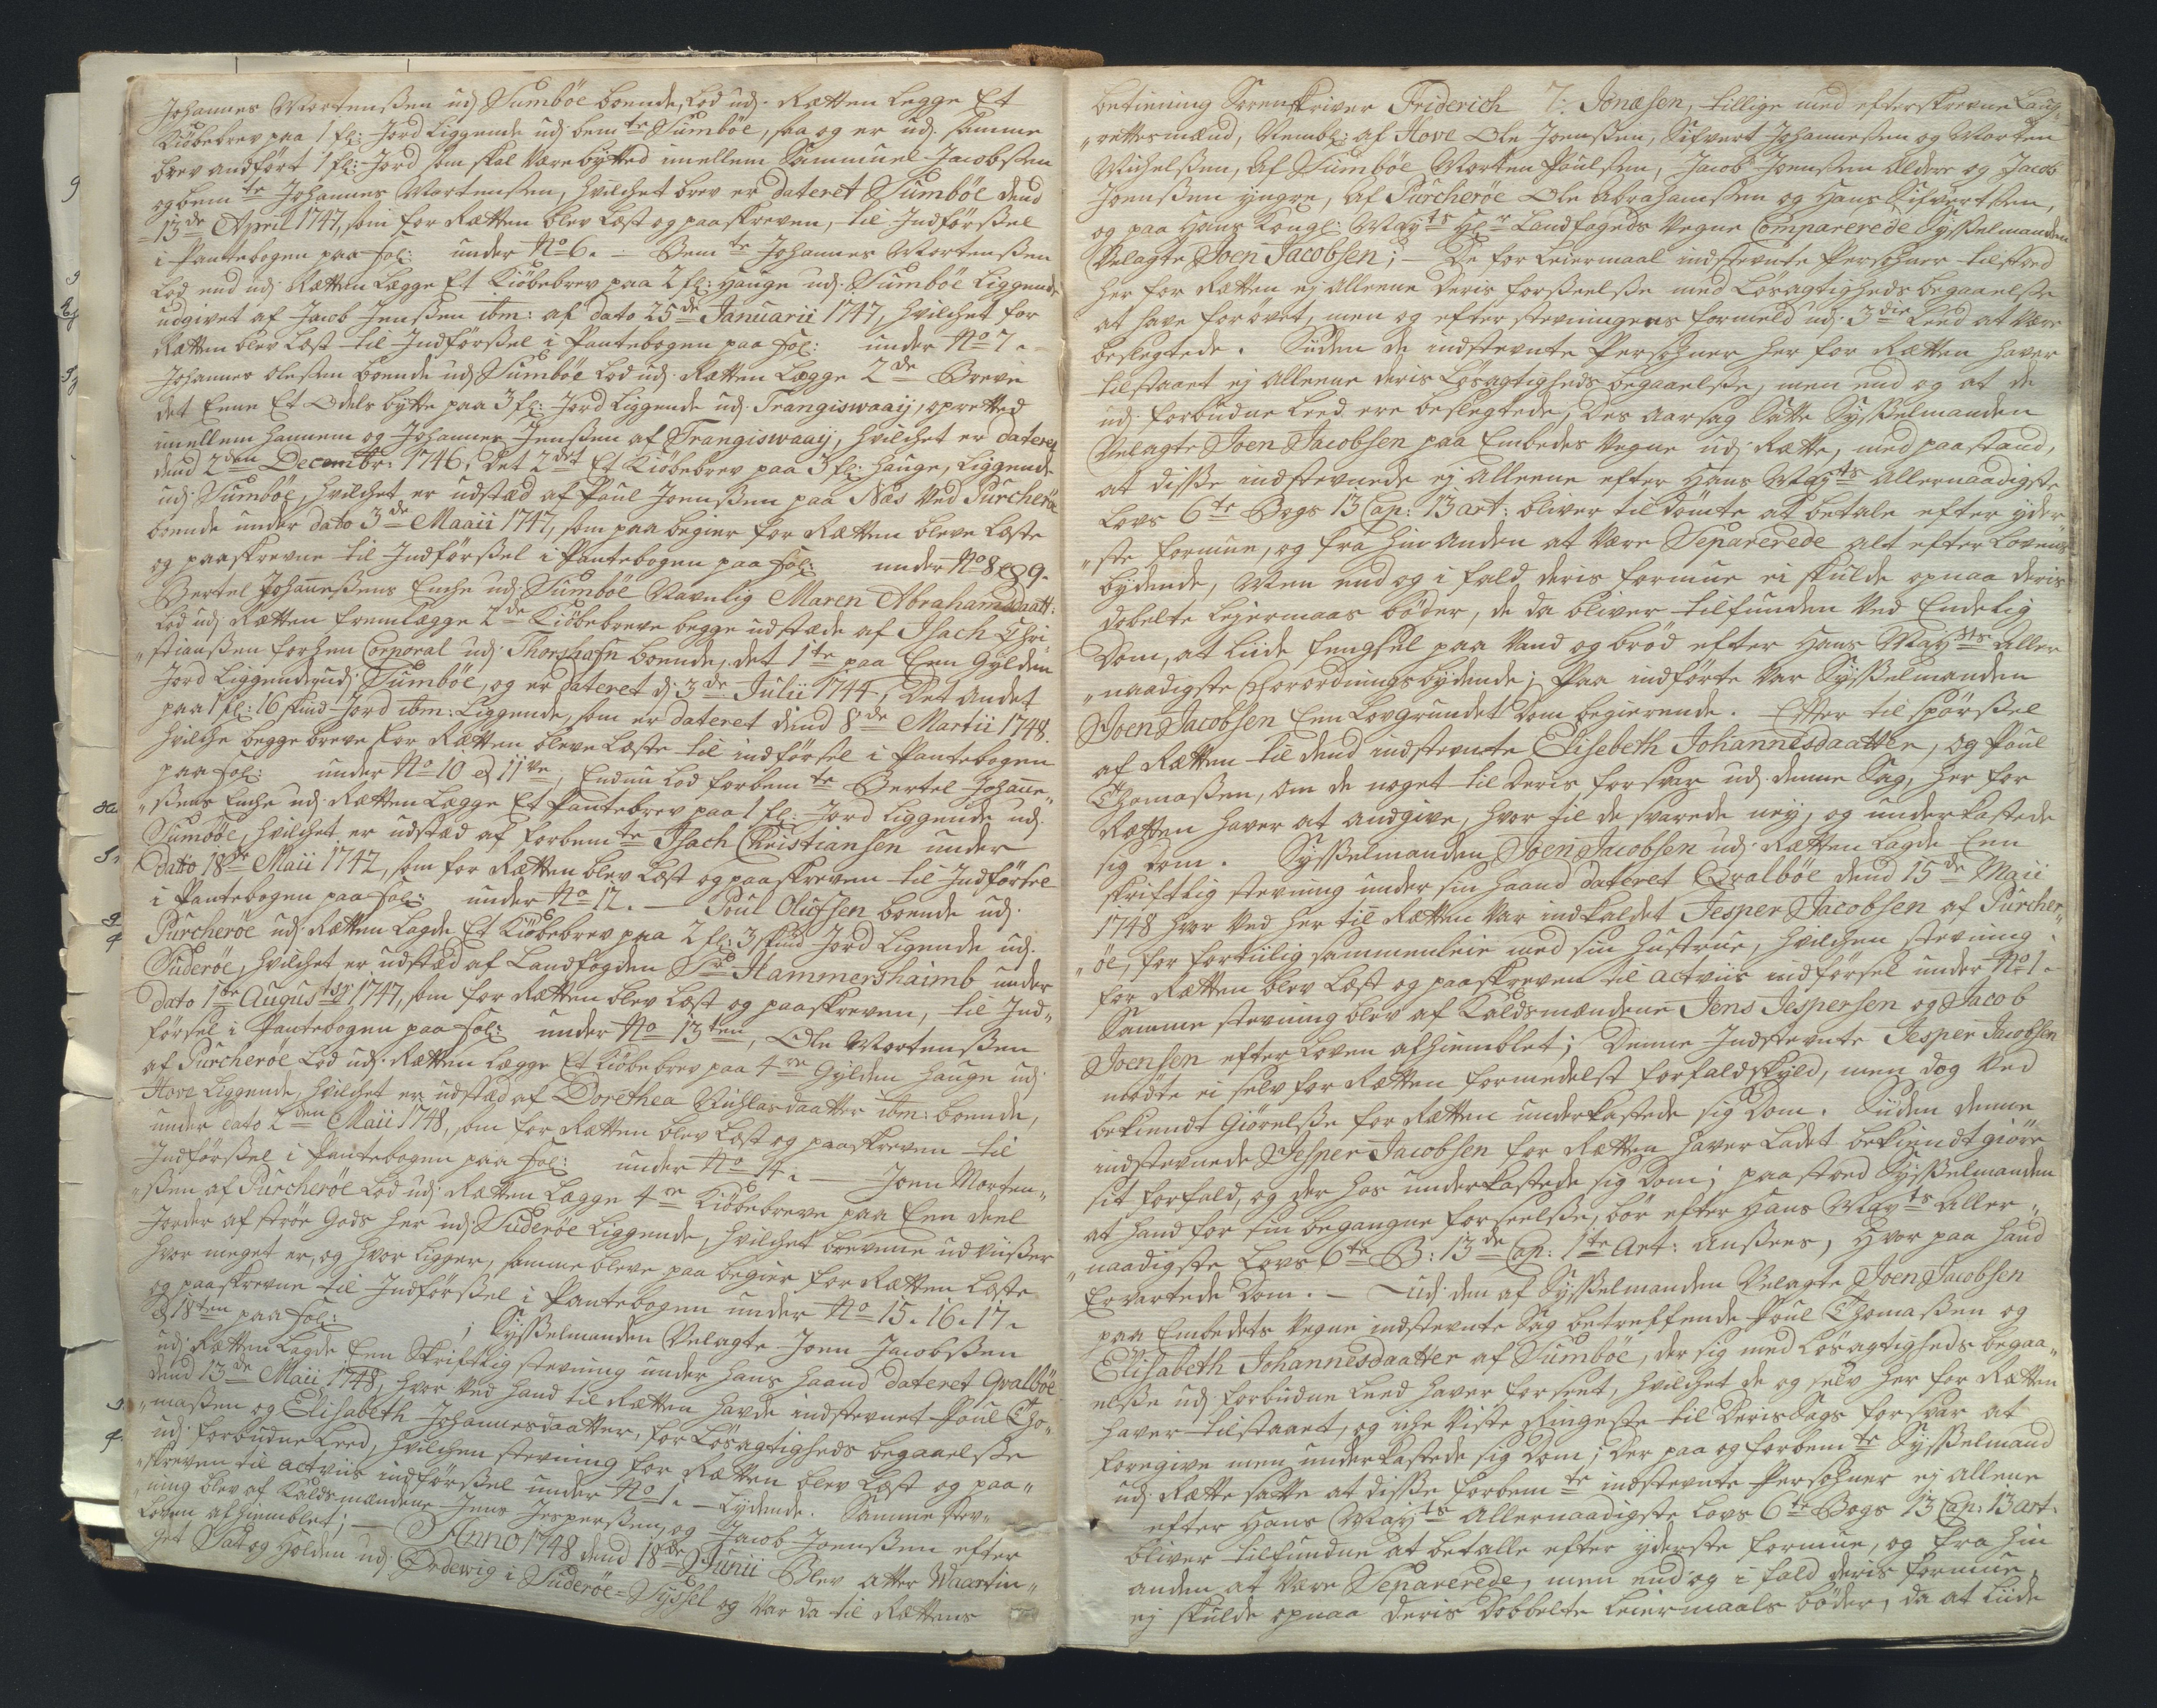 Johannes Mortenßen udj Sumböe boende, Lod udj Rætten Legge Et
Kiöbebrev paa 1 fl: Jord Liggende udj bemte Sumböe, saa og er udj samme
brev andfört 1 fl: Jord som skal være bÿtted imellem Sammuel Jacobsen
og bemte Johannes Mortensen, hvilchet brev er dateret Sumböe dend
13de April 1747, som for Rætten blev Læst og paaskreven, til Indförßel
i Pantebogen paa fol: under No 6. – Bemte Johannes Mortenßen
Lod end udj Rætten Lægge Et Kiöbebrev paa 2 fl: Hauge udj Sumböe Liggende
udgivet af Jacob Jenßen ibm: af dato 25de Januarii 1747, hvilchet for
Rætten blev Læst til Indförßel i Pantebogen paa fol: under No 7.
Johannes Olesen boende udj Sumböe Lod udj Rætten Lægge 2de Breve
det Eene Et Odels bytte paa 3 fl: Jord Liggende udj Trangiswaaij, opretted
imellem hannem og Johannes Jenßen af Trangiswaaij, hvilchet er dateret
dend 2den Decembr: 1746, det 2det Et Kiöbebrev paa 3 fl: Hauge, Liggende
udj Sumböe, hvilchet er udstæd af Poul Joenßen paa Næs ved Purcheröe
boende under dato 3de Maaii 1747, som paa begier for Rætten bleve Læste
og paaskrevne til Indförßel i Pantebogen paa fol: under No 8 & 9.
Bertel Johanneßens Enche udj Sumböe Navnlig Maren Abrahamsdaatt:
Lod udj Rætten fremlægge 2de Kiöbebreve begge udstæde af Isach Chri„
„stianßen forhen Corporal udj Thorshafn boende, det 1te paa Een Gylden
Jord Liggende udj Sumböe, og er dateret d: 3de Julii 1744, det andet
paa 1 fl: 16 skind Jord ibm: Liggende, som er dateret dend 8de Martii 1748.
hvilche begge breve for Rætten bleve Læste til indförsel i Pantebogen
paa fol: under No 10 & 11ve, Endnu Lod forbemte Bertel Johanne„
„ßens Enche udj Rætten Lægge Et Pantebrev paa 1 fl: Jord Liggende udj
Sumböe, hvilchet er udstæd af forbemte Isach Christiansen under
dato 18de Maii 1742, som for Rætten blev Læst og paaskreven til Indförsel
i Pantebogen paa fol: under No 12. – Poul Olufsen boende udj
Purcheröe udj Rætten Lagde Et Kiöbebrev paa 2 fl: 3 skind Jord Ligende udj
Suderöe, hvilchet er udstæd af Landfogden Sr Hammershaimb under
dato 1te Augustij 1747, som for Rætten blev Læst og paaskreven, til Ind„
förßel i Pantebogen paa fol: under No 13ten, Ole Mortenßen
af Purcheröe Lod udj Rætten Lægge Et Kiöbebrev paa 4re Gylden Hauge udj
Hove Liggende, hvilchet er udstæd af Dorethea Nichlasdaatter ibm: boende,
under dato 2den Maii 1748, som for Rætten blev Læst og paaskreven til
Indförßel i Pantebogen paa fol: under No 14. – Joen Morten„
„ßen af Purcheröe Lod udj Rætten Lægge 4re Kiöbebreve paa Een deel
Jorder af ströe Gods her udj Suderöe Liggende, hvilchet brevene udviiser
hvor meget er, og hvor ligger, samme bleve paa begier for Rætten Læste
og paaskrevne til Indförßel i Pantebogen under No 15. 16. 17.
& 18ten paa fol: ; Sysßelmanden Velagte Joen Jacobßen
udj Rætten Lagde Een Skriftlig stevning under hans haand dateret Qvalböe
dend 13de Maii 1748, hvor ved hand til Rætten havde indstevnet Poul Tho„
„maßen og Elisabeth Johannesdaatter, for Lösagtigheds begaaelsße
udj forbudne Leed, hvilchen stevning for Rætten blev Læst og paa„
„skreven til actviis indförßel under No 1. – Lydende. Samme stev„
„ning blev af Kaldsmændene Jens Jesperßen, og Jacob Joenßen efter
Loven afhiemblet; – Anno 1748 dend 18de Junii Blev atter Maartin„
get Sat og holden udj Ördewig i Suderöe=Sysßel og var da til Rættens
betiening Sorenskriver Friderich T: Jonæsen, tillige med efterskrevne Laug„
„rettesmænd, Nembl: af Hove Ole Joenßen, Sifvert Johanneßen og Morten
Michelßen, af Sumböe Morten Poulsen, Jacob Joensen Ældere og Jacob
Joenßen yngre, af Purcheröe Ole Abrahamßen og Hans Sifvertßen,
og paa Hans Kongl: Mayts Hr Landfogeds Vegne Comparerede Sysßelmanden
Velagte Joen Jacobsen; – De for Leiermaal indstevnte Persohner tilstoed
her for Rætten ej alleene deris forsßeelsße med Lösagtigheds begaaelsße
at have forövet, men og efter stevningens formeld udj 3die Leed at være
beslegtede. Siden de indstevnte Persohner her for Rætten haver
tilstaaet ej alleene deris Lösagtigheds begaaelsße, men end og at de
udj forbudne Leed ere beslegtede, Des aarsag Satte Sysßelmanden
Velagte Joen Jacobsen paa Embedes Vegne udj Rætte, med paastand,
at disße indstevnede ej alleene efter Hans Mayts allernaadigste
Lovs 6te Bogs 13 Cap: 13 art: bliver tildömte at betale efter yder
„ste formue, og fra hin anden at være Separerede alt efter Lovens
bydende, Men end og i fald deris formue ei skulde opnaa deris
dobelte Leiermaals böder, de da bliver tilfunden ved Endelig
Dom, at Liide fengsel paa Vand og bröd efter Hans Maysts aller
„naadigste Forordnings bydende; Paa indförte var Sysßelmanden
Joen Jacobsen Een Lovgrundet Dom begierende. – Efter til spörßel
af Rætten til dend indstevnte Elisebeth Johannesdaatter, og Poul
Thomaßen, om de noget til deris forsvar udj denne Sag, her for
Rætten haver at andgive, hvor til de svarede ney, og underkastede
sig Dom. Sysßelmanden Joen Jacobsen udj Rætten Lagde Een
skriftlig stevning under sin haand dateret Qvalböe dend 15de Maii
1748 hvor ved her til Rætten var indkaldet Jesper Jacobsen af Purcher„
„öe, for fortiilig sammenleie med sin hustrue, hvilchen stevning
for Rætten blev Læst og paaskreven til actviis indförsel under No 1.
Samme stevning blev af Kaldsmændene Jens Jespersen og Jacob
Joensen efter Loven afhiemblet; Denne Indstevnte Jesper Jacobsen
mödte ei selv for Rætten formedelst forfaldskyld, men dog ved
bekiendt Giörelsße for Rætten underkastede sig Dom. Siden denne
indstevnede Jesper Jacobsen for Rætten haver Ladet bekiendtgiöre
sit forfald, og der hos underkastede sig Dom; paastoed Sysßelmanden
at hand for sin begangne forseelsße, bör efter Hans Mayts aller„
„naadigste Lovs 6te B: 13de Cap: 1te Art: ansees, hvor paa hand
Ervartede Dom. – Udj den af Sysßelmanden Velagte Joen Jacobsen
paa Embedets Vegne indstevnte Sag betreffende Poul Thomaßen og
Elisabeth Johannesdaatter af Sumböe, der sig med Lösagtigheds begaa„
elsße udj forbudne Leed haver forseet, hvilchet de og selv her for Rætten
haver tilstaaet, og iche viste Ringeste til deris Sags forsvar at
foregive men underkastede sig Dom; der paa og forbemte Sysßelmand
udj Rætte satte at disße forbemte indstevnte Persohner ej allene
efter Hans Mayts allernaadigste Lovs 6te Bogs 13 Cap: 13 art:
bliver tilfundne at betalle efter yderste formue, og fra hin
anden at være Separerede, men end og i fald deris formue
ej skulde opnaa deris dobbelte Leiermaals böder, da at Liide